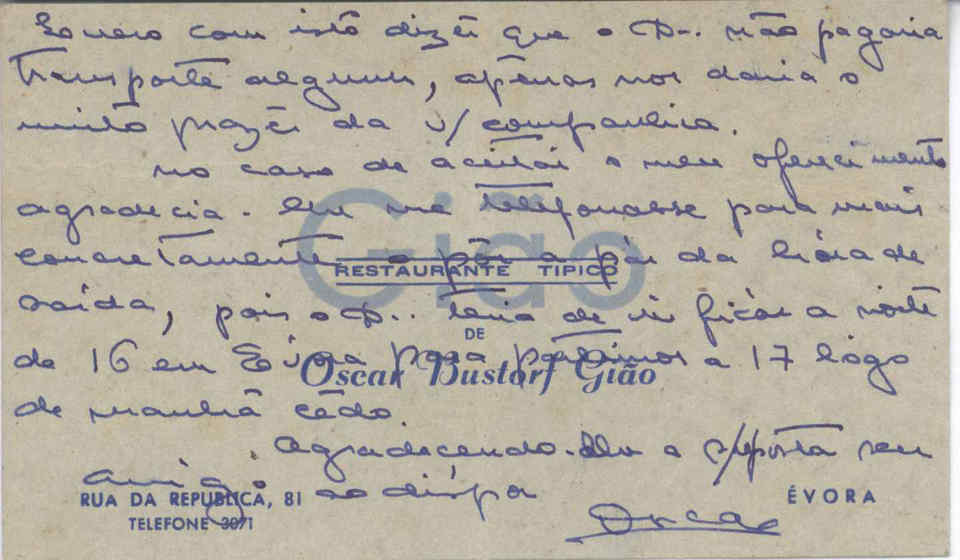 Quero com isto dizer que o D... não pagaria
transporte algum, apenas nos daria o
muito prazer da v/ companhia.
No caso de aceitar o meu oferecimento
agradecia-lhe me telefonasse para mais
concretamente o pôr a par da hora de
saída, pois o D... teria de vir ficar a noite
de 16 em Evora para partirmos a 17 lôgo
de manhã cêdo.
Agradecendo-lhe a r/posta seu
amigo ao dispor
Oscar
Gião
RESTAURANTE TIPICO
DE
Oscar Bustorf Gião
RUA DA REPUBLICA, 81
TELEFONE 3071
ÉVORA